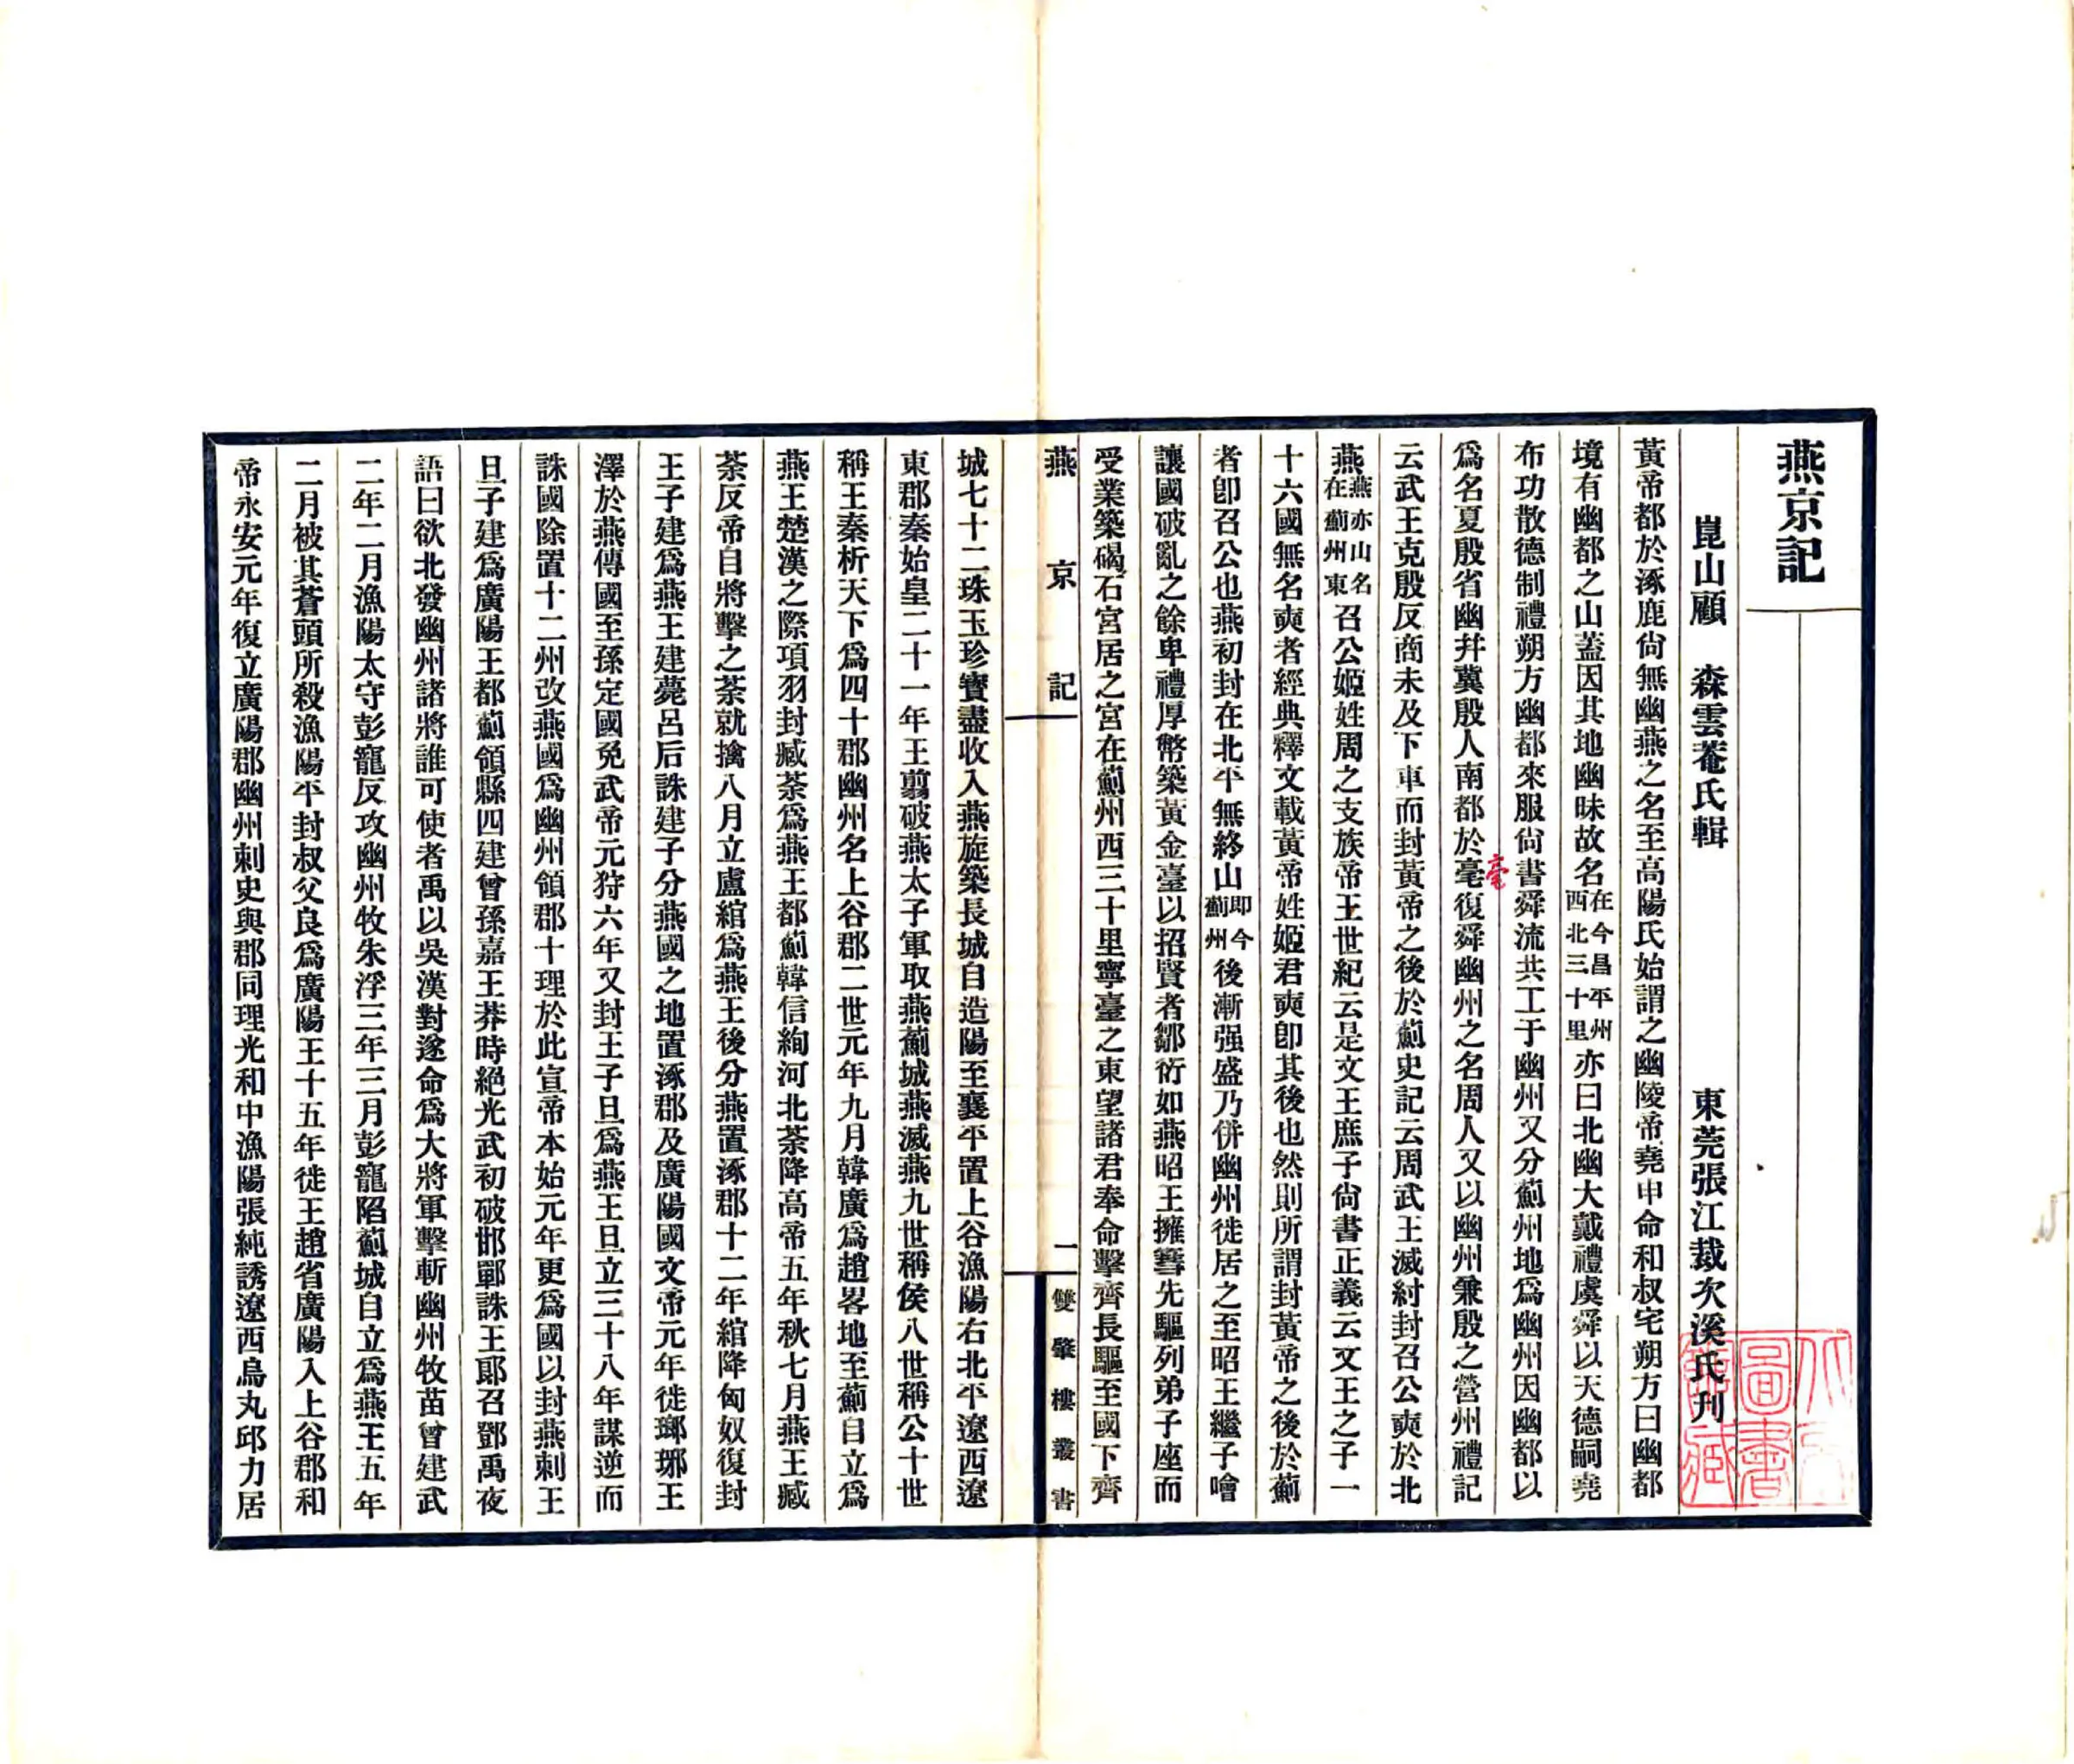 燕京記
崑山顧　森雲菴氏輯　東莞張江裁次溪氏刊
黃帝都於涿鹿尙無幽燕之名至高陽氏始謂之幽陵帝堯申命和叔宅朔方曰幽都
境有幽都之山蓋因其地幽昧故名在今昌平州西北三十里亦曰北幽大戴禮虞舜以天德嗣堯
布功散德制禮朔方幽都來服尙書舜流共工于幽州又分薊州地爲幽州因幽都以
爲名夏殷省幽幷冀殷人南都於毫復舜幽州之名周人又以幽州兼殷之營州禮記
亳
云武王克殷反商未及下車而封黃帝之後於薊史記云周武王滅紂封召公奭於北
燕燕亦山名在薊州東召公姬姓周之支族帝王世紀云是文王庶子尙書正義云文王之子一
十六國無名奭者經典釋文載黃帝姓姬君奭卽其後也然則所謂封黃帝之後於薊
者卽召公也燕初封在北平無終山卽今薊州後漸强盛乃併幽州徙居之至昭王繼子噲
讓國破亂之餘卑禮厚幣築黃金臺以招賢者鄒衍如燕昭王擁篲先驅列弟子座而
受業築碣石宮居之宮在薊州西三十里寧臺之東望諸君奉命擊齊長驅至國下齊
燕京記　一　雙肇樓叢書
城七十二珠玉珍寶盡收入燕旋築長城自造陽至襄平置上谷漁陽右北平遼西遼
東郡秦始皇二十一年王翦破燕太子軍取燕薊城燕滅燕九世稱侯八世稱公十世
稱王秦析天下爲四十郡幽州名上谷郡二世元年九月韓廣爲趙畧地至薊自立爲
燕王楚漢之際項羽封臧荼爲燕王都薊韓信絢河北荼降高帝五年秋七月燕王臧
荼反帝自將擊之荼就擒八月立盧綰爲燕王後分燕置涿郡十二年綰降匈奴復封
王子建爲燕王建薨呂后誅建子分燕國之地置涿郡及廣陽國文帝元年徙瑯琊王
澤於燕傳國至孫定國免武帝元狩六年又封王子旦爲燕王旦立三十八年謀逆而
誅國除置十二州改燕國爲幽州領郡十理於此宣帝本始元年更爲國以封燕剌王
旦子建爲廣陽王都薊領縣四建曾孫嘉王莽時絕光武初破邯鄲誅王郎召鄧禹夜
語曰欲北發幽州諸將誰可使者禹以吳漢對遂命爲大將軍擊斬幽州牧苗曾建武
二年二月漁陽太守彭寵反攻幽州牧朱浮三年三月彭寵陷薊城自立爲燕王五年
二月被其蒼頭所殺漁陽平封叔父良爲廣陽王十五年徙王趙省廣陽入上谷郡和
帝永安元年復立廣陽郡幽州刺史與郡同理光和中漁陽張純誘遼西烏丸邱力居